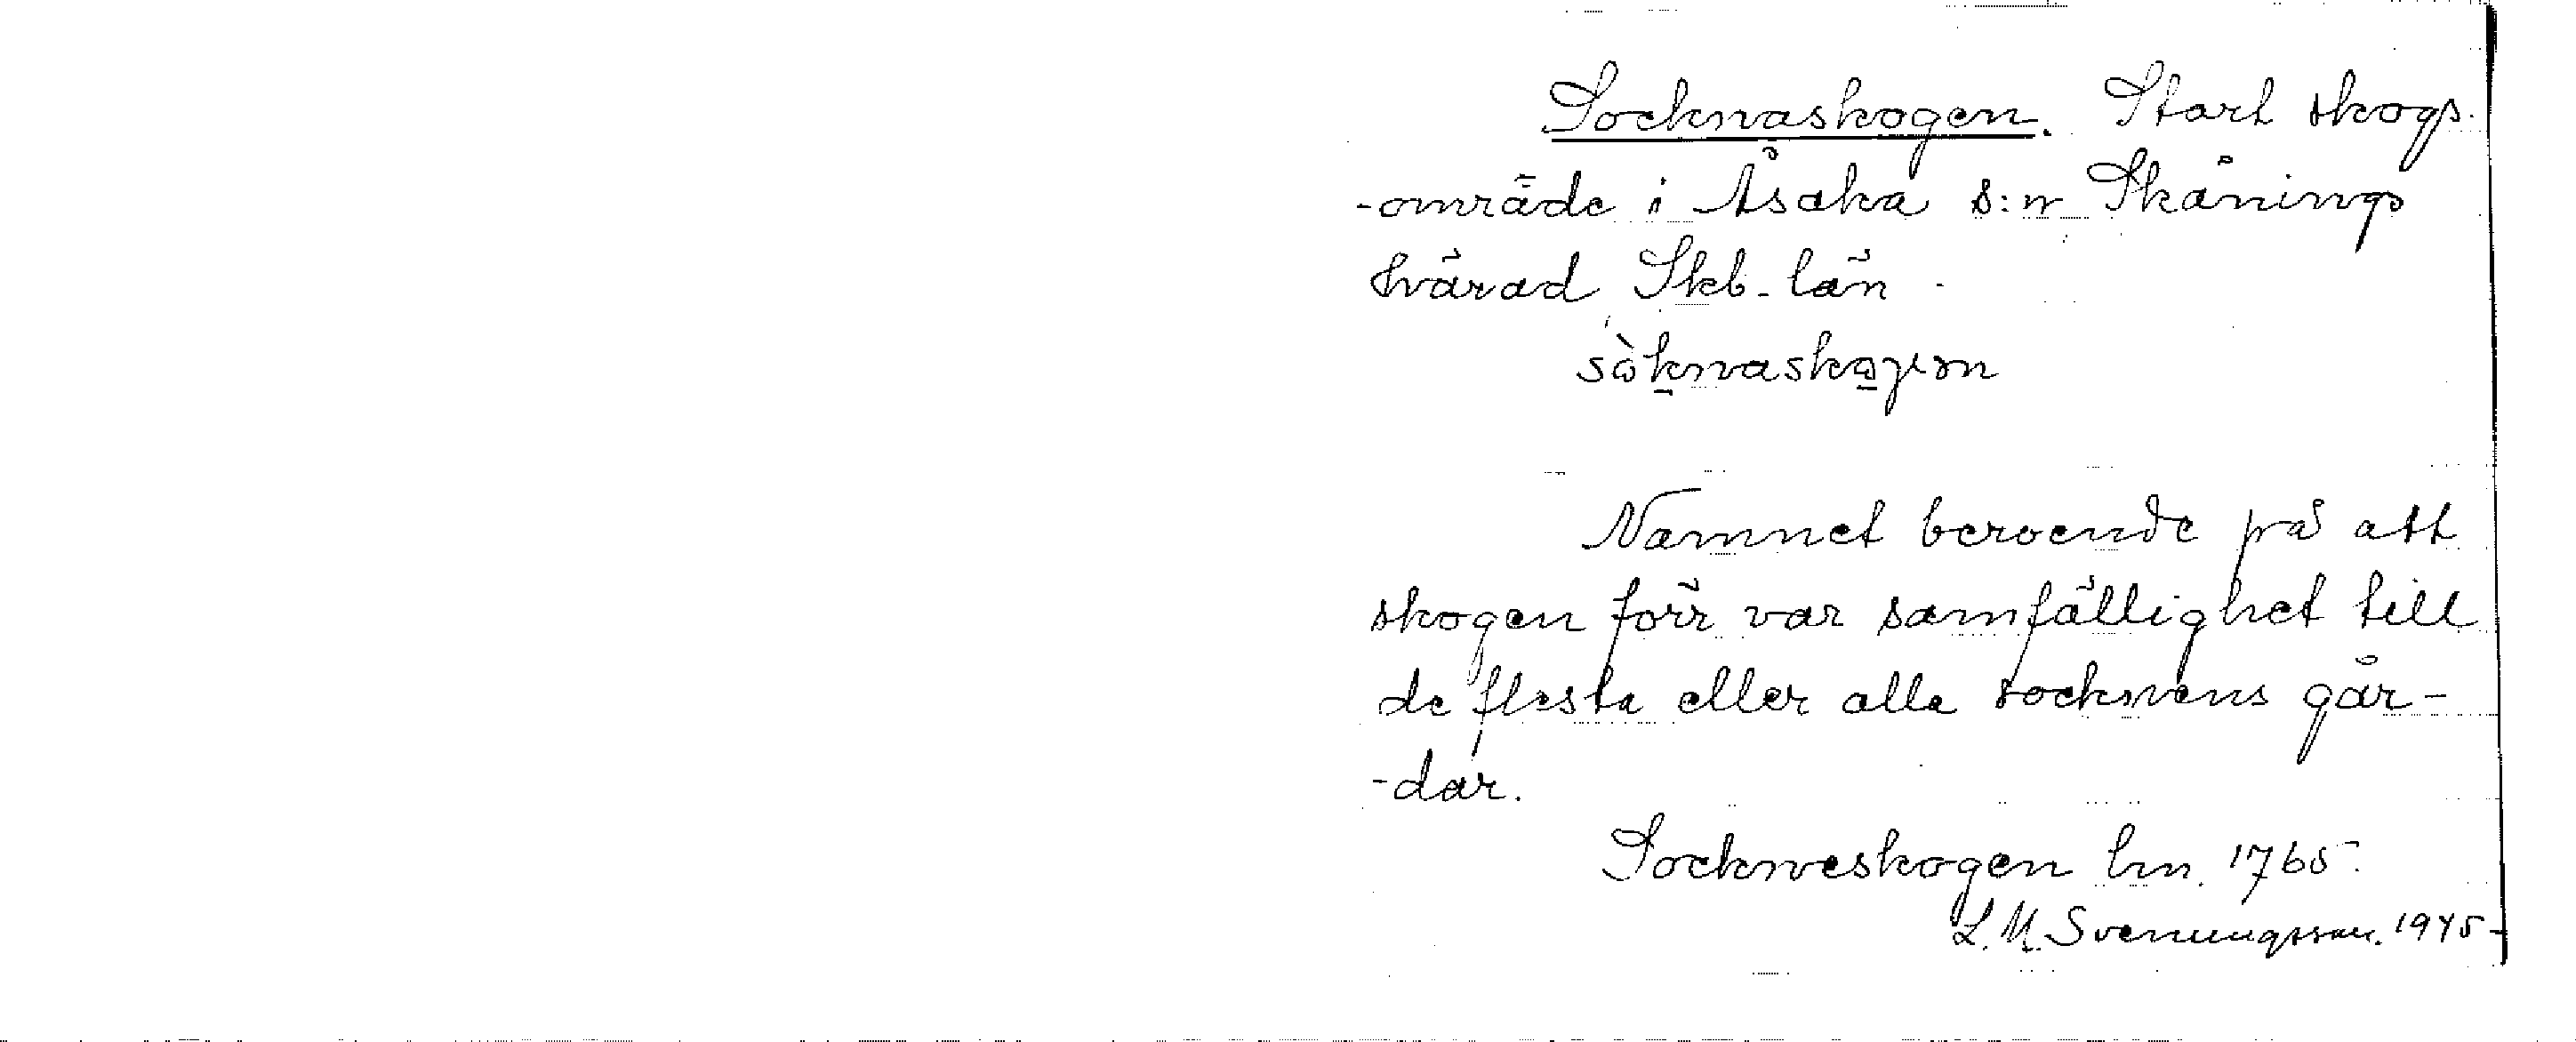 Socknaskogen. Stort skogs-
-område i Åsaka s:n Skånings
härad Skb. län.
sòknaskojen
Namnet beroende på att
skogen förr var samfällighet till
de flesta eller alla socknens går-
-dar.
Sockneskogen hn. 1765.
L. M. Svenungsson. 1945